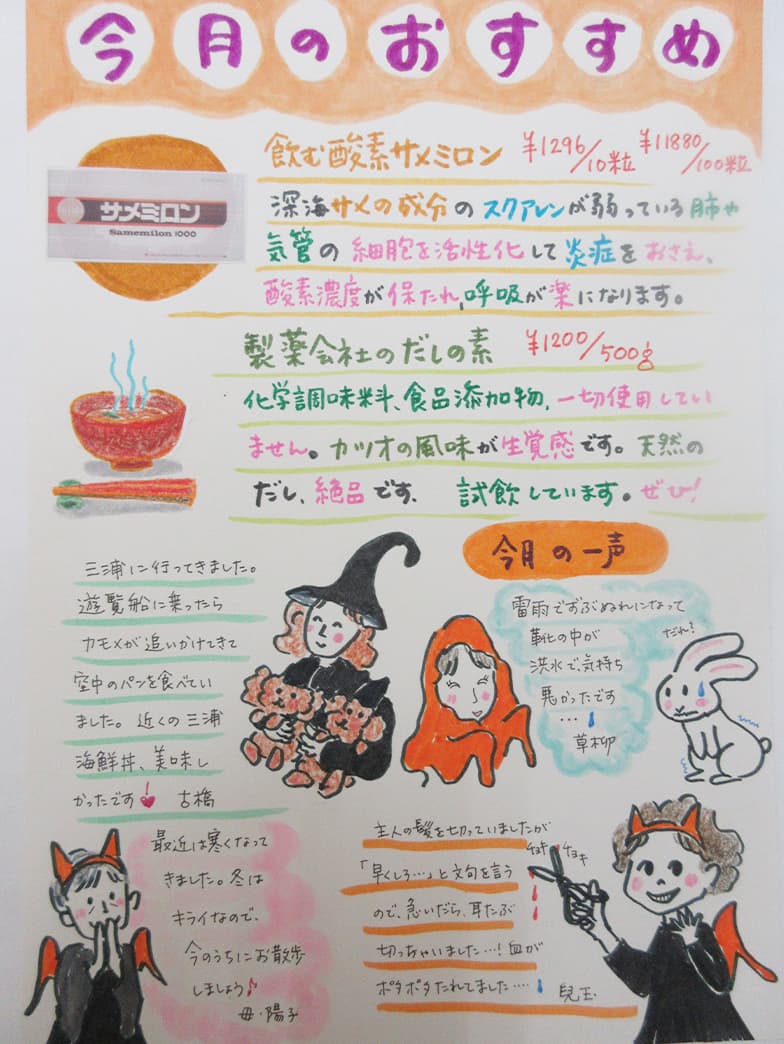 今月のおすすめ
飲む酸素サメミロン ¥1296/10粒 ¥11880/100粒
サメミロン
Samemilon 1000
深海サメの成分のスクアレンが弱っている肺や
気管の細胞を活性化して炎症をおさえ、
酸素濃度が保たれ、呼吸が楽になります。
製薬会社のだしの素 ¥1200/500g
化学調味料、食品添加物、一切使用してい
ません。カツオの風味が生覚感です。天然の
だし、絶品です。 試飲しています。ぜひ!
今月の一声
三浦に行ってきました。
遊覧船に乗ったら
カモメが追いかけてきて
空中のパンを食べてい
ました。近くの三浦
海鮮丼、美味し
かったです
古橋
雷雨でずぶぬれになって
靴の中が
洪水で気持ち
悪かったです
…
草柳
だれ?
最近は寒くなって
きました。冬は
キライなので、
今のうちにお散歩
しましょう♪
母・陽子
主人の髪を切っていましたが
「早くしろ…」と文句を言う
ので、急いだら、耳たぶ
切っちゃいました…!血が
ポタポタたれてました….
兒玉
チョキ チョキ